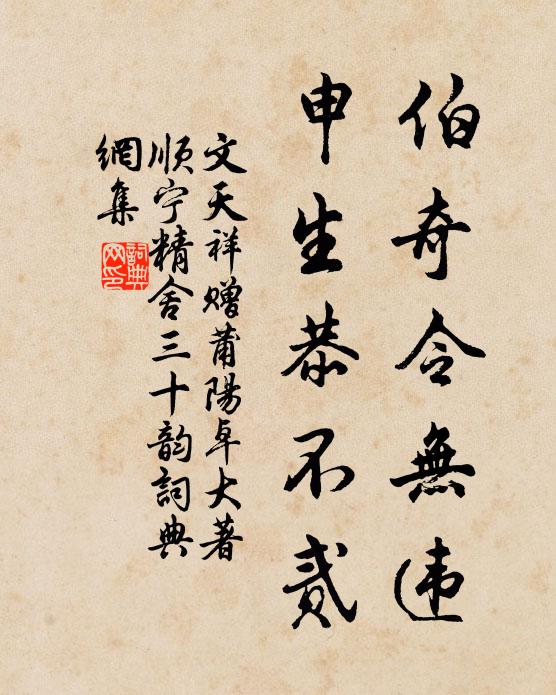 伯奇令無违
申生恭不貳
文天祥赠莆陽卓大著
順宁精舍三十韵詞典
網集
詞典
网印